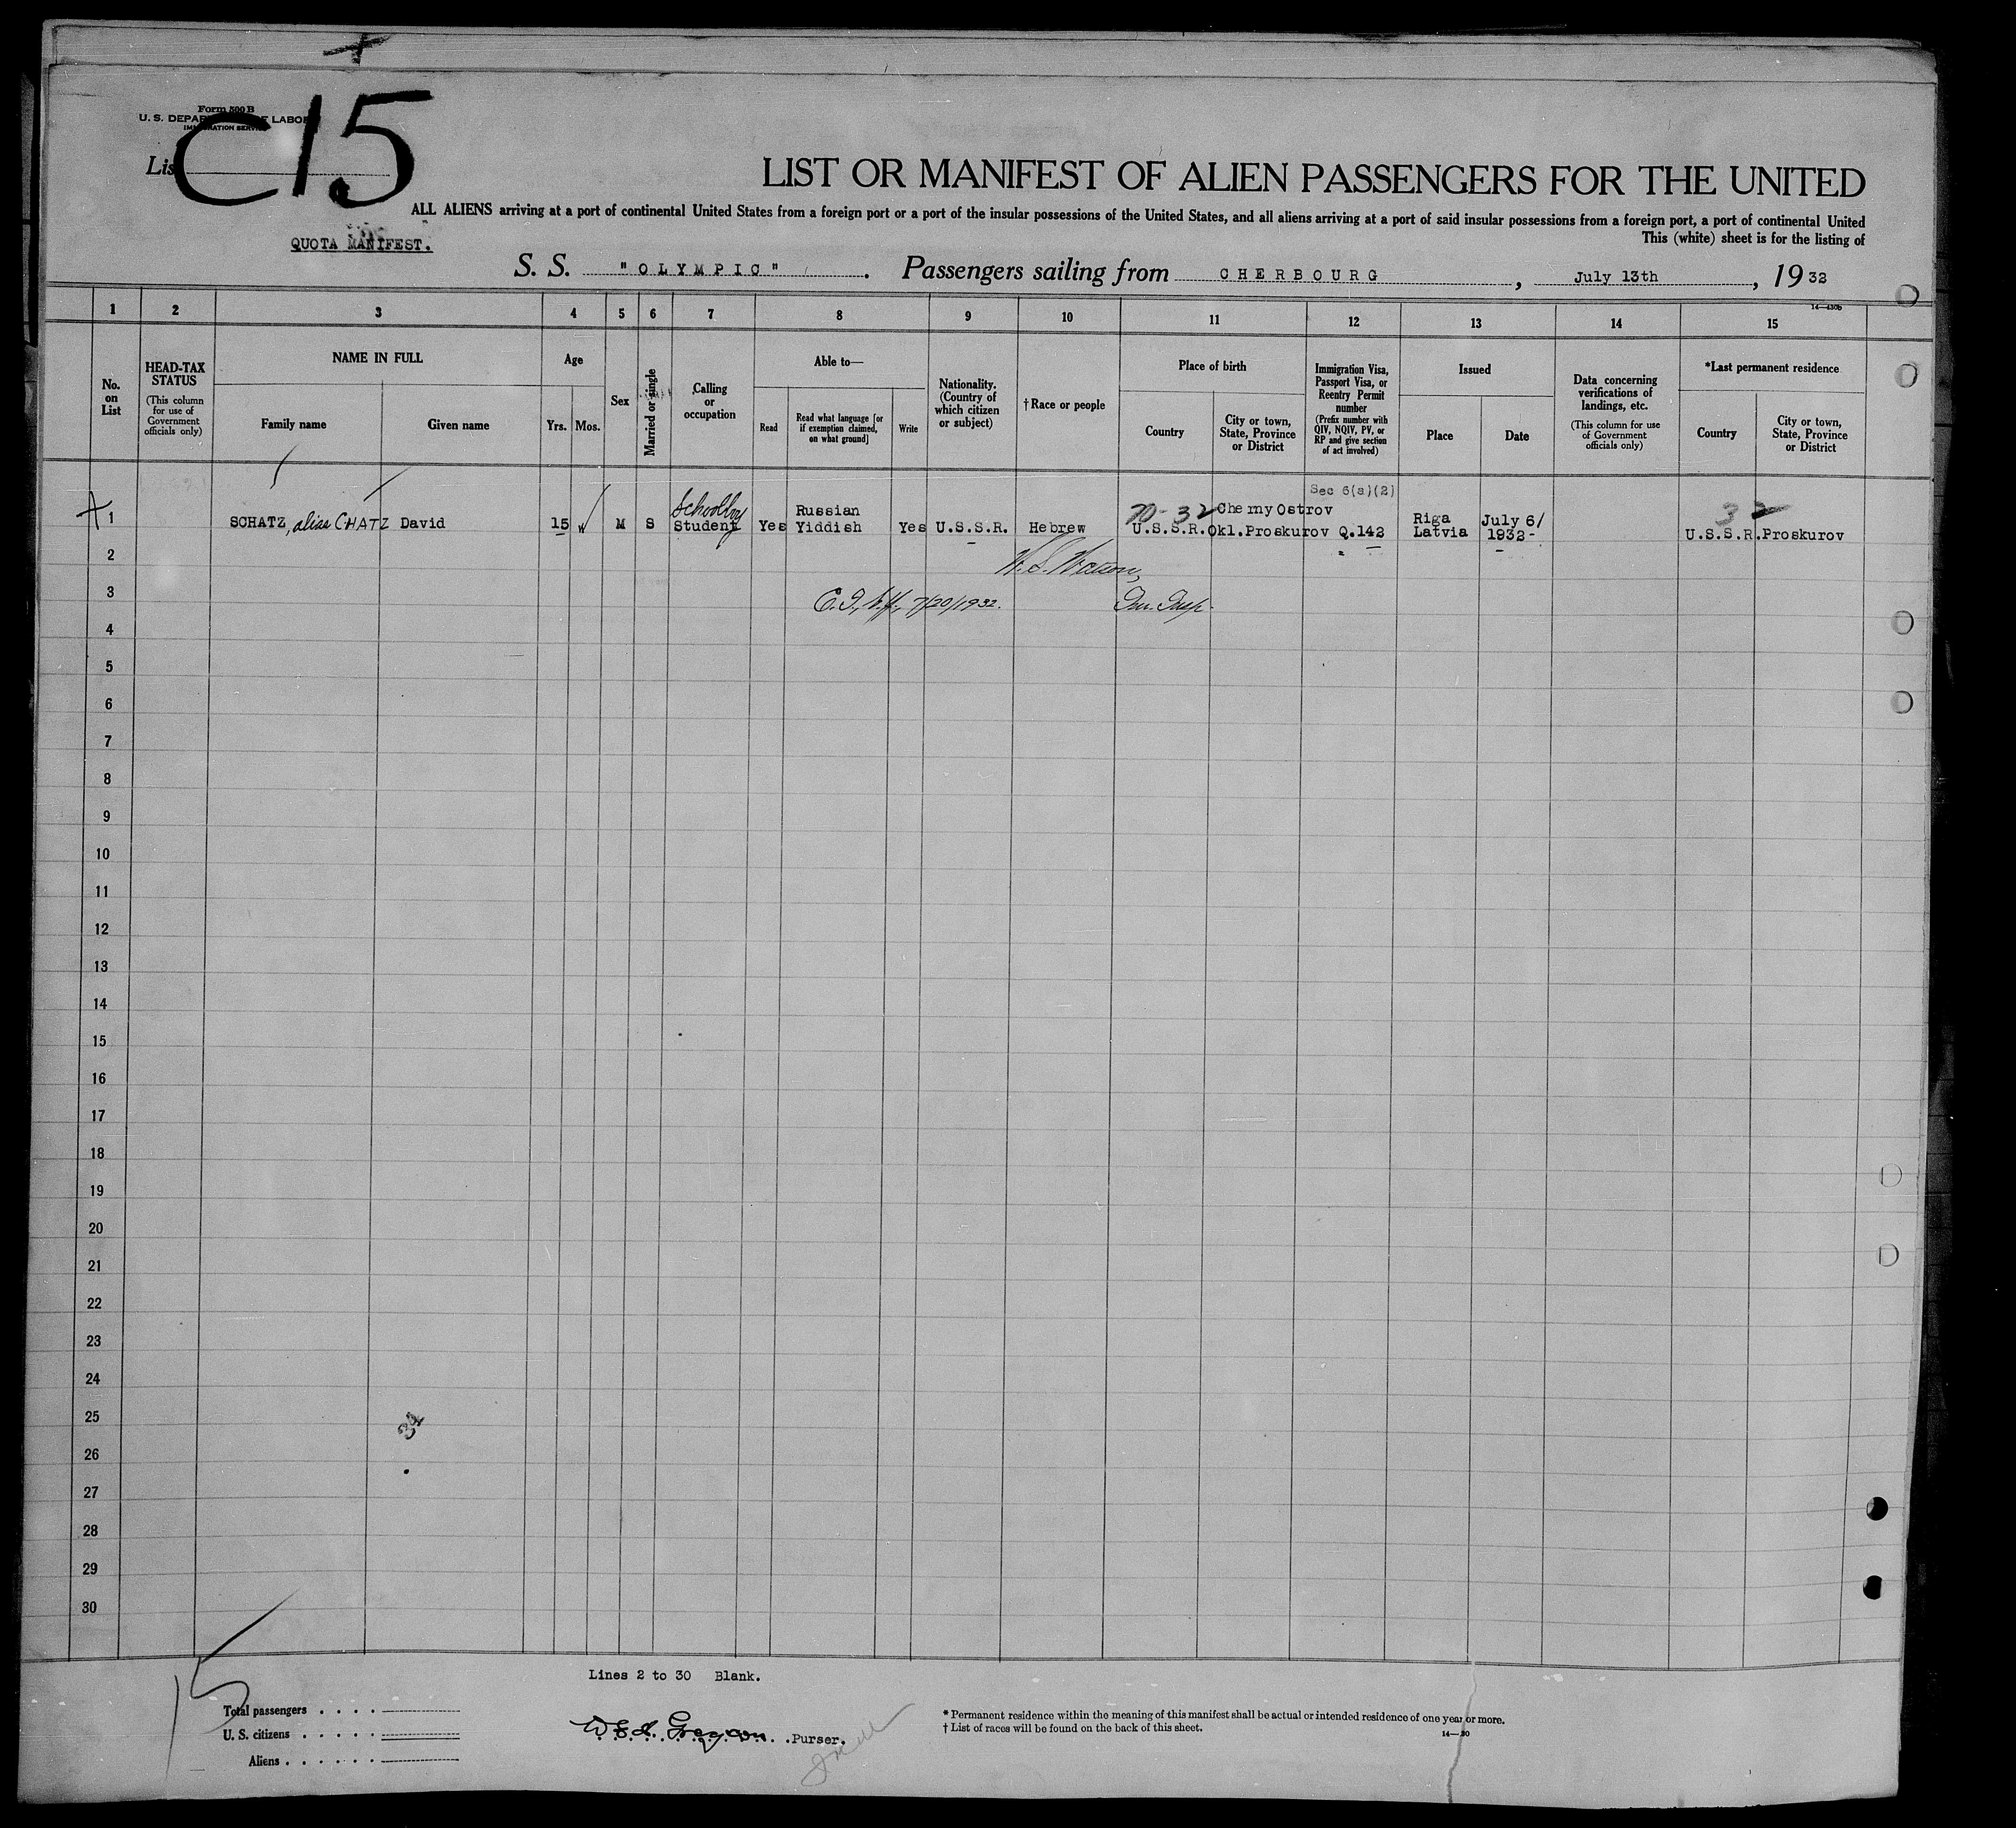 Form 500 B
U. S. DEPARTMENT OF LABOR
IMMIGRATION SERVICE
List
C15
LIST OR MANIFEST OF ALIEN PASSENGERS FOR THE UNITED
ALL ALIENS arriving at a port of continental United States from a foreign port or a port of the insular possessions of the United States, and all aliens arriving at a port of said insular possessions from a foreign port, a port of continental United
This (white) sheet is for the listing of
QUOTA MANIFEST.
S. S. "OLYMPIC". Passengers sailing from CHERBOURG, July 13th, 1932
14—430b
1 2 3 4 5 6 7 8 9 10 11 12 13 14 15
No. on List
HEAD-TAX STATUS
(This column for use of Government officials only)
NAME IN FULL
Family name
Given name
Age
Yrs. Mos.
Sex
Married or single
Calling or occupation
Able to—
Read
Read what language [or if exemption claimed, on what ground]
Write
Nationality. (Country of which citizen or subject)
†Race or people
Place of birth
Country
City or town, State, Province or District
Immigration Visa, Passport Visa, or Reentry Permit number
(Prefix number with QIV, NQIV, PV, or RP and give section of act involved)
Issued
Place
Date
Data concerning verifications of landings, etc.
(This column for use of Government officials only)
*Last permanent residence
Country
City or town, State, Province or District
Sec 6(a)(2)
Schoolboy Russian 70-32 Cherny Ostrov Riga July 6/ 32
1 SCHATZ, alias CHATZ David 15 M S Student Yes Yiddish Yes U.S.S.R. Hebrew U.S.S.R. Okl.Proskurov Q.142 Latvia 1932- U.S.S.R. Proskurov
2
3 7/20/1932. Imm. Insp.
4
5
6
7
8
9
10
11
12
13
14
15
16
17
18
19
20
21
22
23
24
25
26
27
28
29
30
Lines 2 to 30 Blank.
15
Total passengers
U. S. citizens
Aliens
Purser.
* Permanent residence within the meaning of this manifest shall be actual or intended residence of one year or more.
† List of races will be found on the back of this sheet.